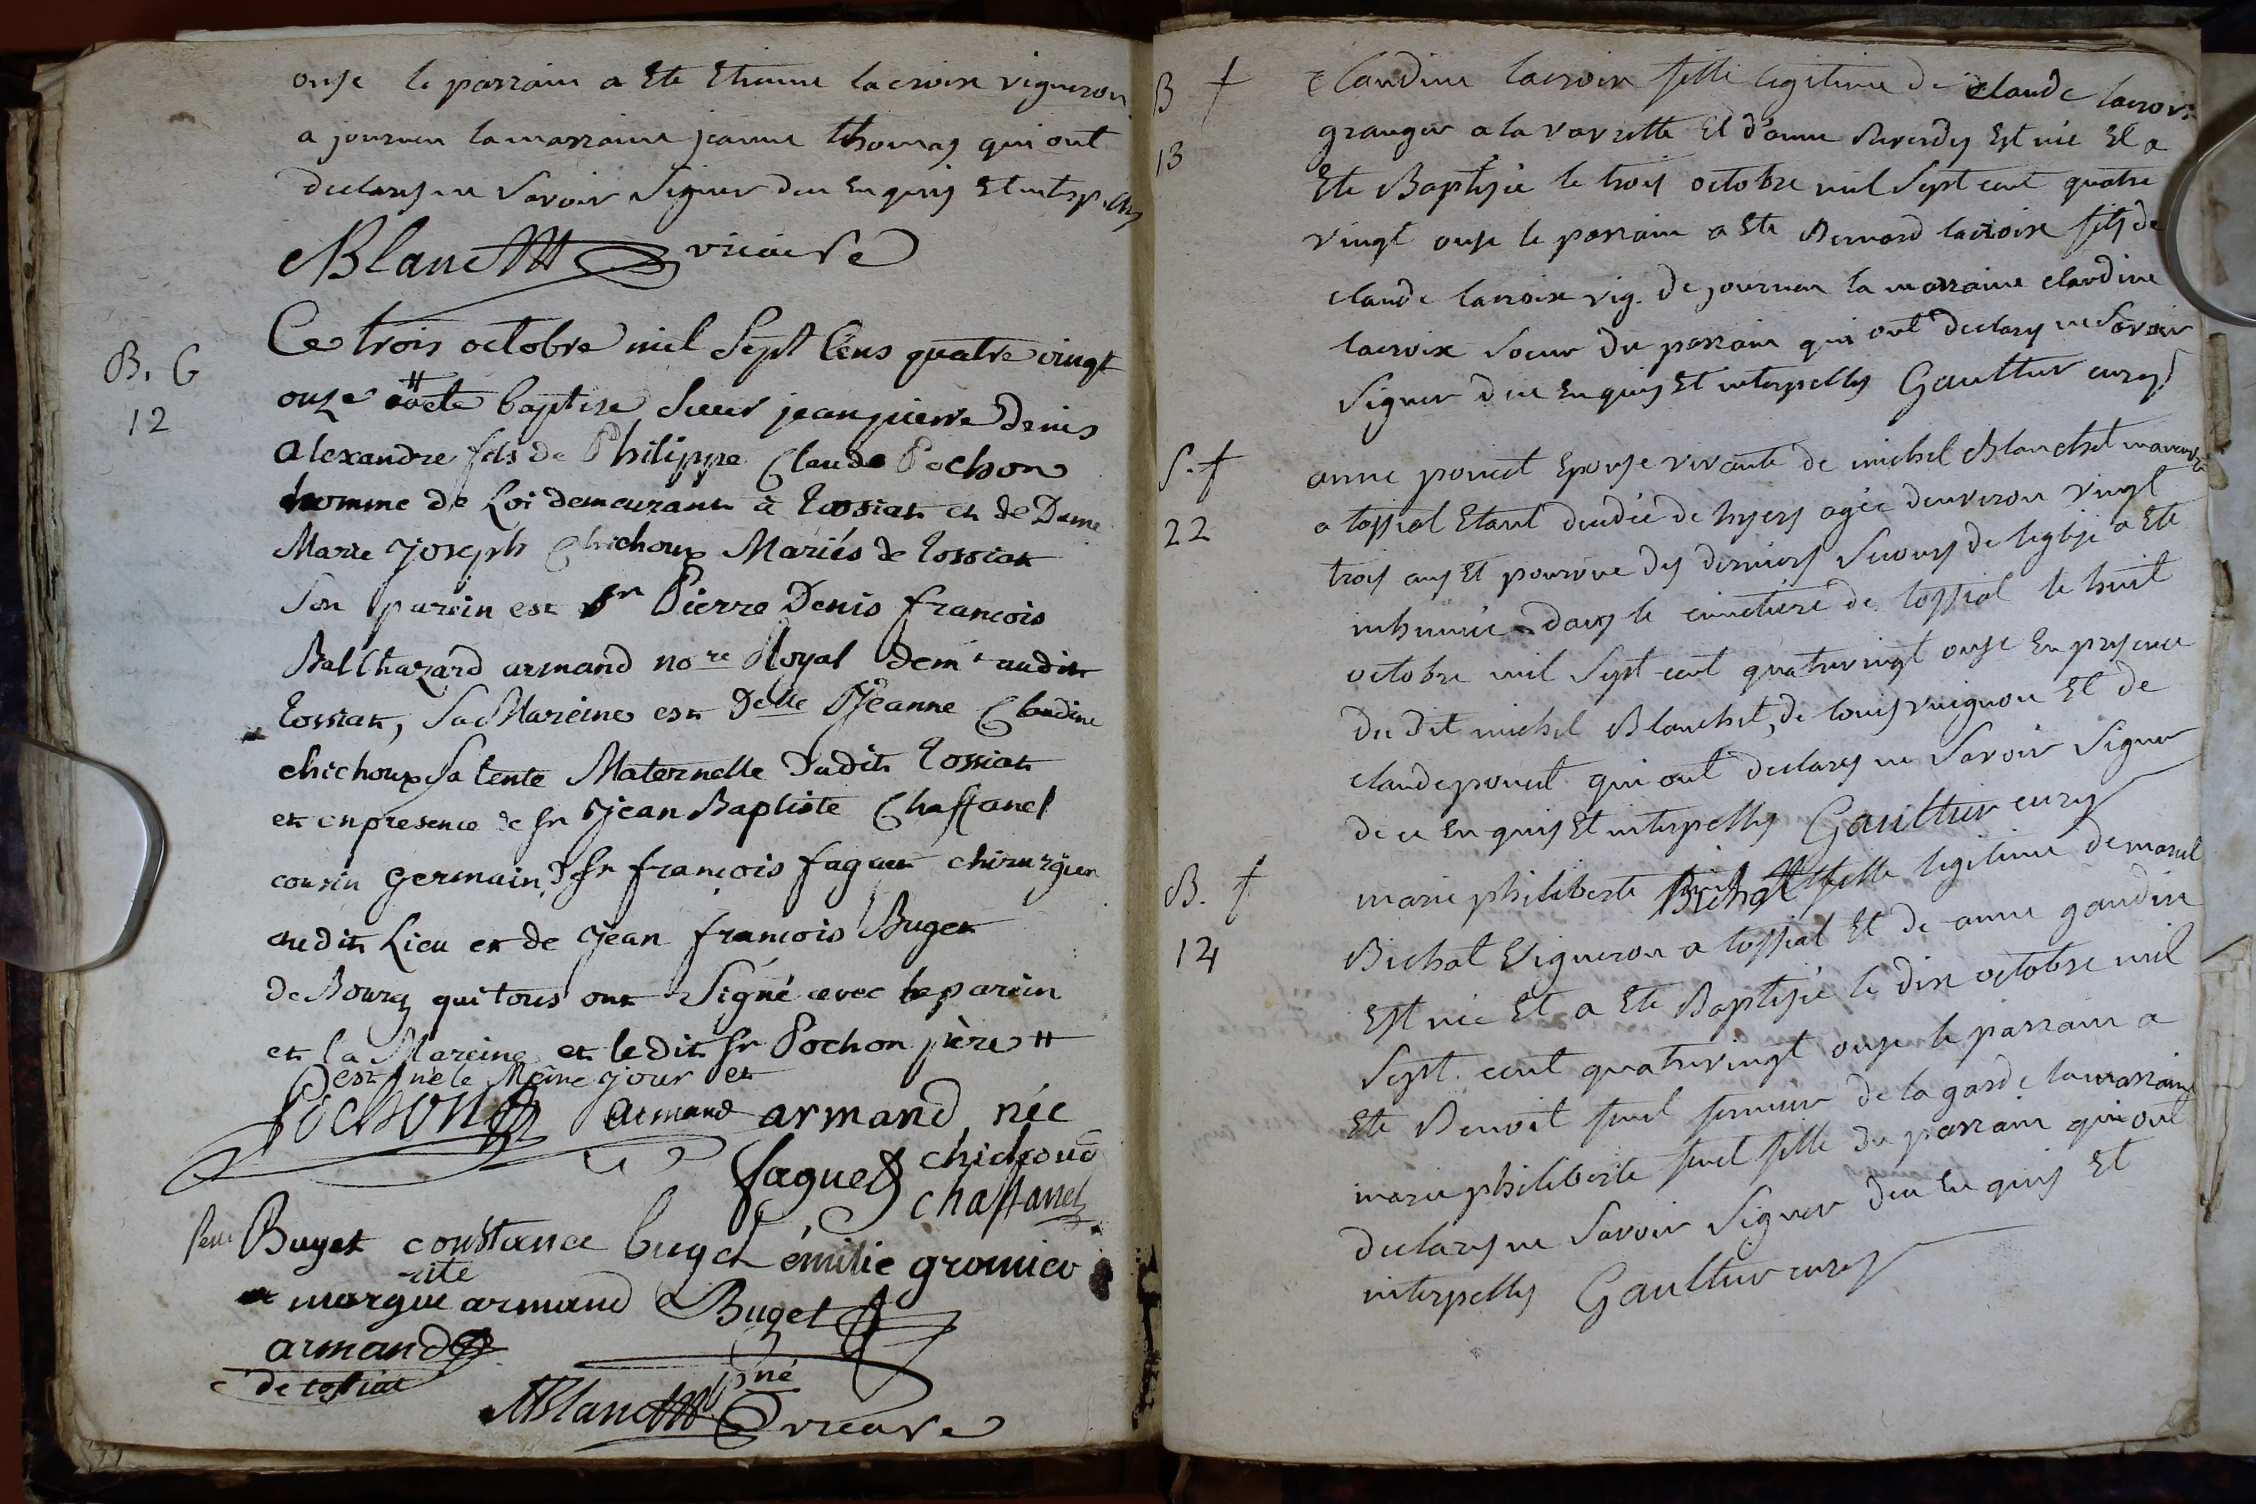 onze le parrain a ete etienne lacroix vigneron
a journen la marraine jeanne thomas qui ont
declarés ne savoir signer deu enquis et interp.lés
Blanc vicaire
B. G
12
Ce trois octobre mil sept cens quatre vingt
onze # a ete baptise sieur jean pierre denis
alexandre fils de Philippe Claude Pochon
homme de Loi demeurant à tossiat et de Dame
Marie joseph Chichoux Mariés de tossiat
son parein est Sr Pierre Denis françois
Balthazard armand nore Royal demt audit
tossiat, sa Mareine est Delle Jeanne Claudine
chichoux sa tente Maternelle dudit tossiat
et en presence de sr jean Baptiste Chaffanel
cousin germain, de sr françois faguet chirurgien
audit Lieu et de jean françois Buget
de Bourg qui tous ont signé avec le parein
et la Mareine et le dit sr Pochon père #
# est né le Même jour et
Pochon armand armand née
faguet chichoud
chaffanel
Buget constance buget émilie gromier
-rite
margue armand Buget
armand
de tossiat
Blanc vicaire
B †
13
Claudine lacroix fille legitime de claude lacroix
granger a la vavrette et d'anne est née et a
ete Baptisée le trois octobre mil sept cent quatre
vingt onze le parrain a ete Bernard lacroix fils de
claude lacroix vig. de journan la marraine claudine
lacroix soeur du parrain qui ont declarés ne savoir
signer deu enquis et interpellés Gaultier curé
S. †
22
anne poncet epouse vivante de michel Blanchet
a tossiat etant decedée de hyers agée denviron vingt
trois ans et pourvue des derniers secours de leglise a ete
inhumée dans le cimetiere de tossiat le huit
octobre mil sept cent quatrevingt onze en presence
du dit michel Blanchet, de louis vuignon et de
claude poncet qui ont declarés ne savoir signer
de ce enquis et interpellés Gaultier curé
B. †
14
marie philiberte Bichat fille legitime de marcel
Bichat Vigneron a tossiat et de anne gaudin
est née et a ete Baptisée le dix octobre mil
sept cent quatrevingt onze le parrain a
ete Benoit fermier de la garde la marraine
marie philiberte fille du parrain qui ont
declarés ne savoir signer deu enquis et
interpellés Gaultier curé